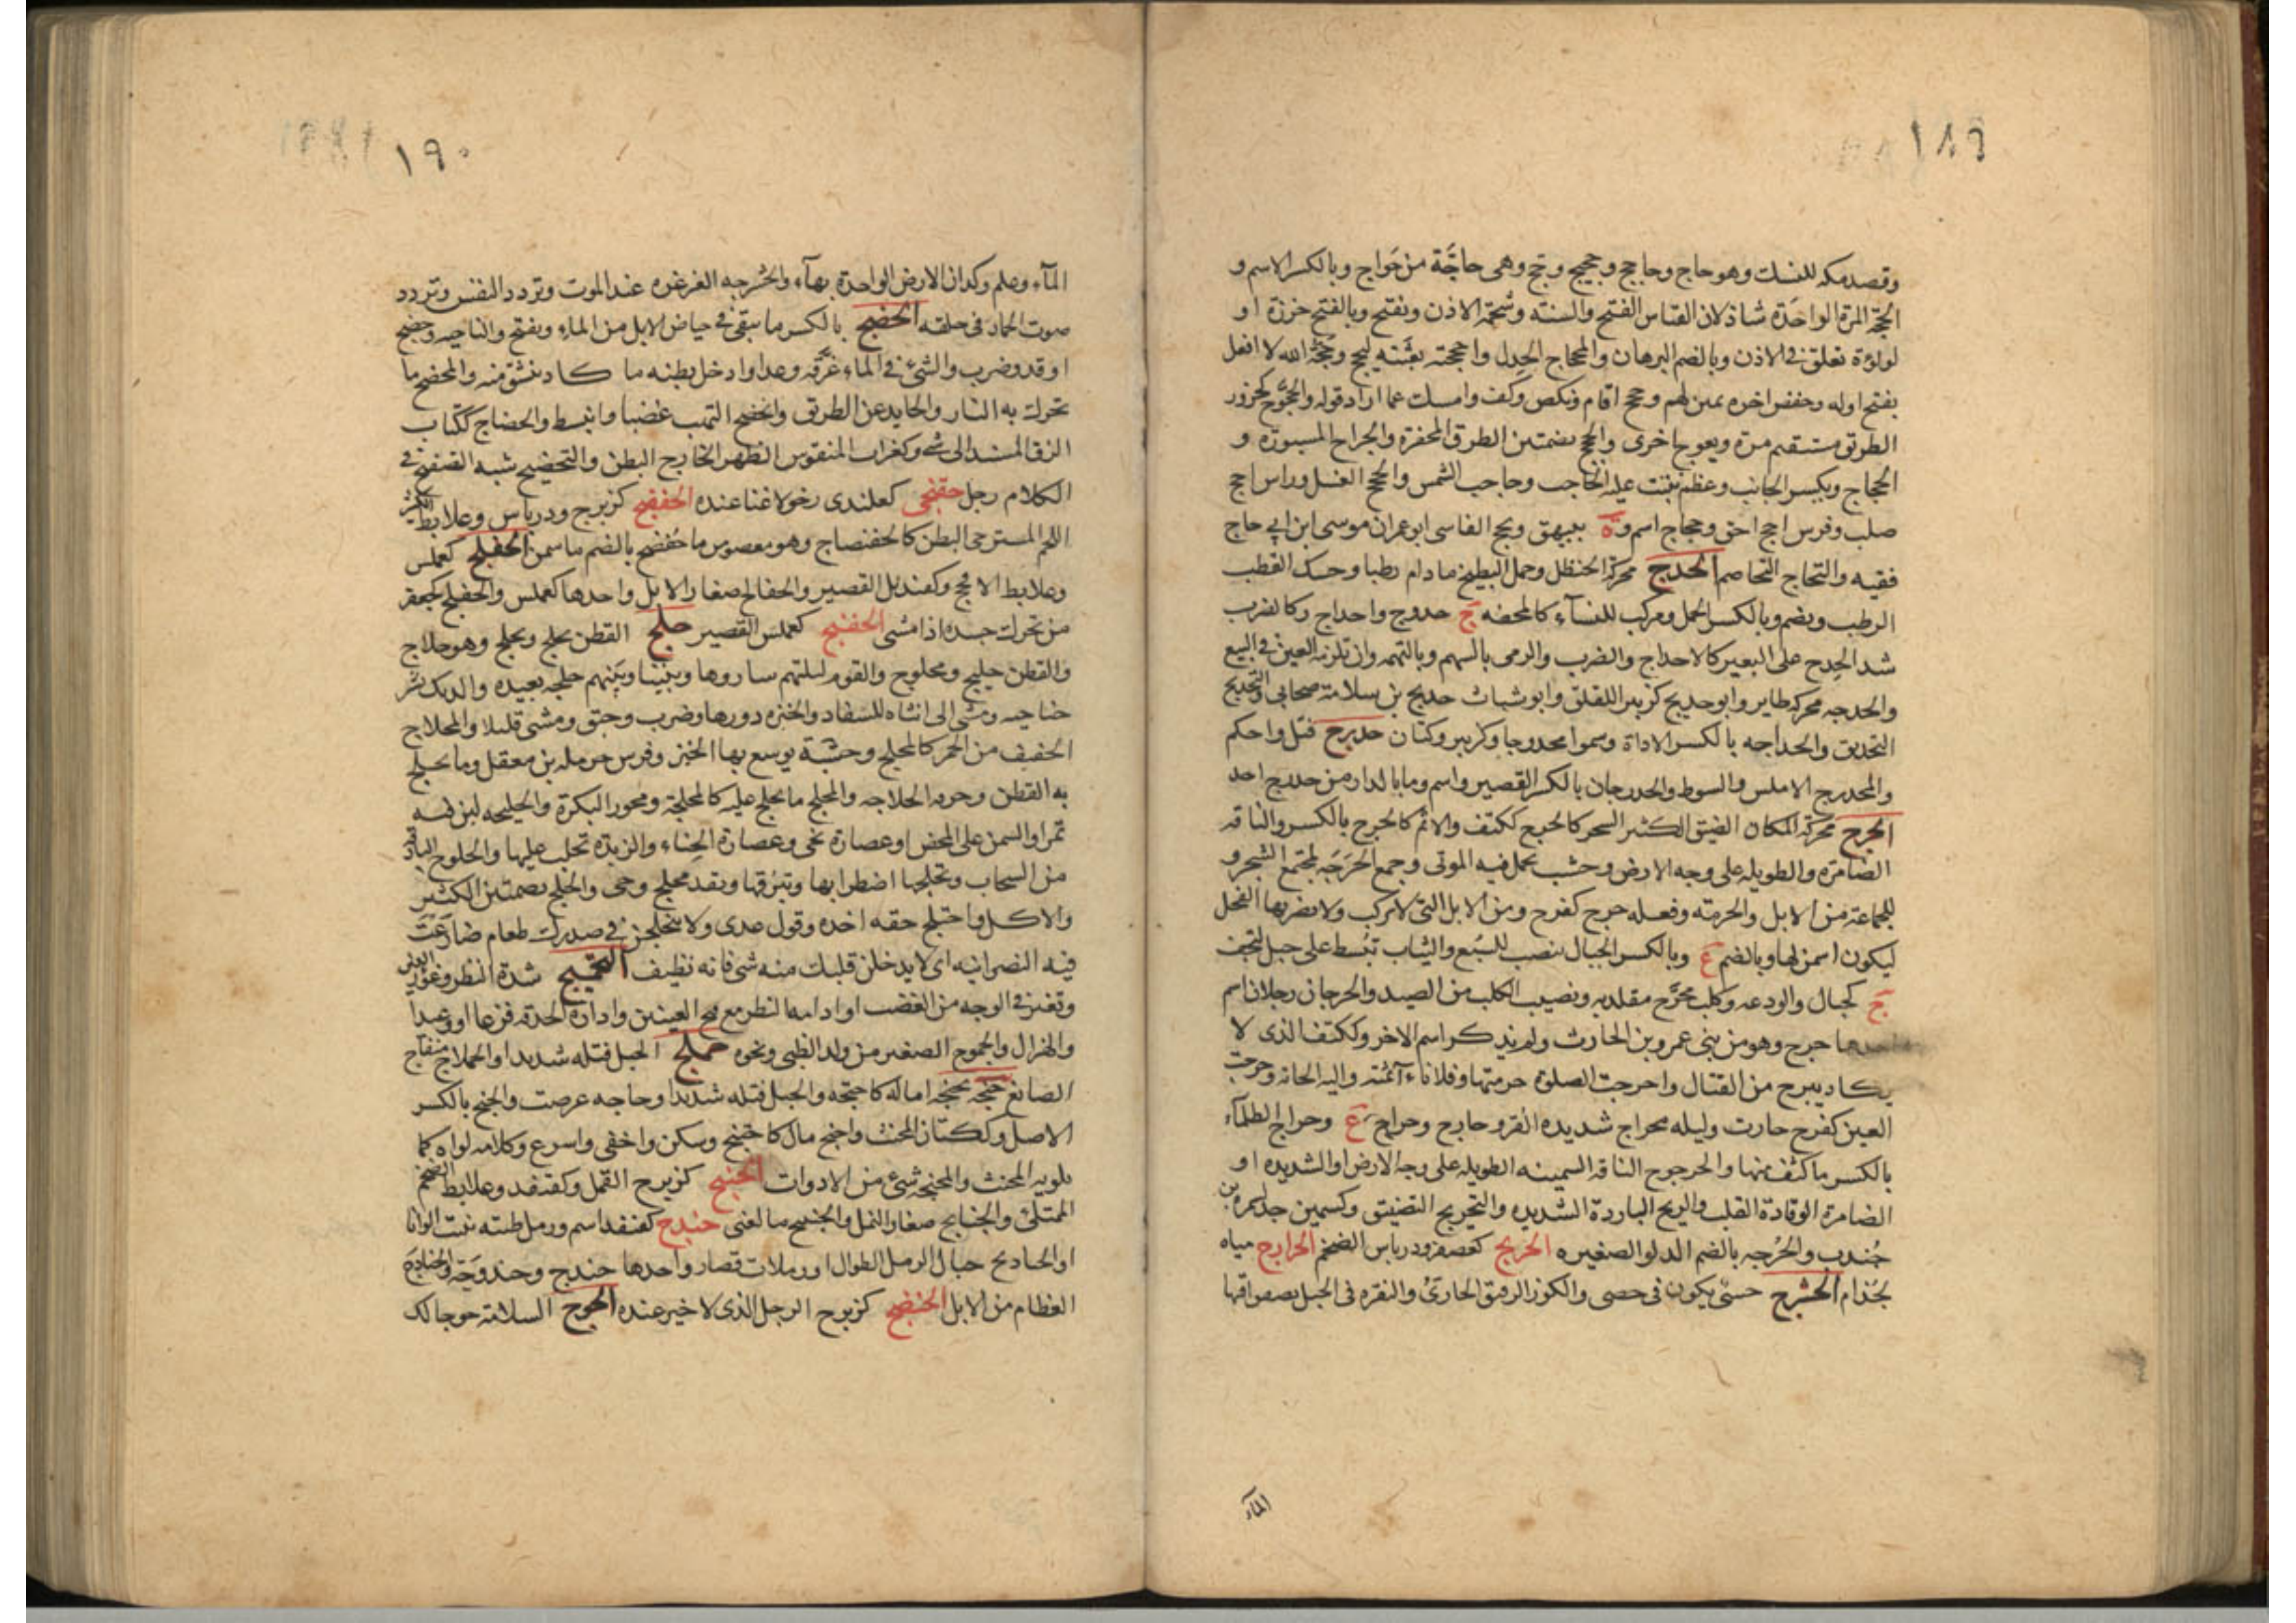 ١٨٩
وقصد مكه للنسك وهو حاج وحاجج وحجيج وحج وهى حاجّة من حواج وبالكسر الاسم و
الحجّة المرة الواحدة شاذ لان القياس الفتح والسنة وشحمة الاذن وتفتح وبالفتح خرزة او
لولؤة تعلق فى الاذن وبالضم البرهان والمحجاج الجدل واحججته بعثته ليحج وحجّة الله لا افعل
بفتح اوله وخفض اخره يمين لهم وحجج اقام ونكص وكف وامسك عما اراد قوله والحجوّج كحزور
الطريق مستقيم مرة ويعوج اخرى والحج بضمتين الطرق المحفرة والجراح المسبورة و
الحجاج ويكسر الجانب وعظم ينبت عليه الحاجب وحاجب الشمس والحجج الغسل وراس احج
صلب وفرس احج احق وحجاج اسم وة ببيهق وبج الفاسى ابو عمران موسى ابن ابي حاج
فقيه والتحاج التخاصم الحدج محركة الحنظل وحمل البطيخ ما دام رطبا وحسك القطب
الرطب ويضم وبالكسر الحمل ومركب للنسآء كالمحفه ج حدوج واحداج وكالضرب
شد الحدج على البعير كالاحداج والضرب والرمى بالسهم وبالتهمه وان تلزمه الغبن فى البيع
والحدجه محركه طاير وابو حديج كزبير اللقلق وابو شباث حديج بن سلامة صحابى والتحديج
التحديق والحداجه بالكسر الاداة وسموا محدوجا وكزبير وكتان حدرج فتل واحكم
والمحدرج الاملس والسوط والحدرجان بالكسر القصير واسم وما بالدار من حدرج احد
الحرج محركة المكان الضيق الكثير الشجر كالحرج ككتف والاثم كالحرج بالكسر والناقه
الضامرة والطويله على وجه الارض وخشب يحمل فيه الموتى وجمع الحرجه لمجتمع الشجر و
للجماعة من الابل والحرمة وفعله حرج كفرح ومن الابل التى لا تركب ولا يضربها الفحل
ليكون اسمن لها وبالضم ع وبالكسر الحبال تنصب للسبع والثياب تبسط على حبل لتجف
ج كجبال والودعه وكلب محرّج مقلد به ونصيب الكلب من الصيد والحرجان رجلان اسم
احدهما حرج وهو من بنى عمرو بن الحارث ولم يذكر اسم الاخر وككتف الذى لا
يكاد يبرح من القتال واحرجت الصلوة حرمتها وفلانا آثمته واليه الجاته وحرجت
العين كفرح حارت وليله محراج شديده القر وحارج وحراج ع وحراج الظلمآء
بالكسر ما كثف منها والحرجوج الناقه السمينه الطويله على وجه الارض او الشديده او
الضامرة الوقادة القلب والريح الباردة الشديده والتحريج التضييق وكسمين جد لسمرة بن
جندب والحرجه بالضم الدلو الصغيره الحربج كعصفر ودرباس الضخم الحرابج مياه
لجذام الحشرج حسى يكون فى حصى والكوز الرقيق الحارى والنقره فى الجبل يصفو فيها
المآء
١٩٠
المآء وعلم وكدان الارض الواحدة بهآء والحشرجه الغرغره عند الموت وتردد النفس وتردد
صوت الحمار فى حلقه الحضج بالكسر ما يبقى فى حياض الابل من الماء ويفتح والناحيه وحضج
اوقد وضرب والشئ فى الماء غرّقه وعدا وادخل بطنه ما كاد ينشق منه والمحضج ما
تحرك به النار والحايد عن الطريق وانحضج التهب غضبا وانبسط والحضاج ككتاب
الزق المسند الى شئ وكغراب المنقوس الظهر الخارج البطن والتحضيج شبه التضجيع فى
الكلام رجل حفنجى كعلندى رخو لا غنا عنده الحفضج كزبرج ودرباس وعلابط الكثير
اللحم المسترخى البطن كالحفنضاج وهو معصوب ما حفضج بالضم ما سمن الحفلج كعملس
وعلابط الافحج وكقنديل القصير والحفالج صغار الابل واحدها كعملس والحفيلج كجعفر
من تحرك جسده اذا مشى الحفنج كعملس القصير حلج القطن يحلج ويحلج وهو حلاج
والقطن حليج ومحلوج والقوم ليلتهم ساروها وبيننا وبينهم حلجه بعيده والديك نشر
جناحيه ومشى الى انثاه للسفاد والخبزه دورها وضرب وحبق ومشى قليلا والمحلاج
الخفيف من الحمر كالمحلج وخشبة يوسع بها الخبز وفرس حرمله بن معقل وما يحلج
به القطن وحرفه الحلاجه والمحلج ما يحلج عليه كالمحلجة ومحور البكرة والحليجه لبن فيه
تمر او السمن على المخض او عصارة نحى وعصارة الحناء والزبدة تحلب عليها والحلوج البارقه
من السحاب وتحلجها اضطرابها وتبرقها ونقد محلج وحى والحلج بضمتين الكثير
والاكل واحتلج حقه اخذه وقول عدى ولا يتحلجن فى صدرك طعام ضارعت
فيه النصرانيه اى لا يدخلن قلبك منه شى فانه نظيف التحميج شدة النظر وغؤر العين
وتغير فى الوجه من الغضب او ادامه النظر مع فتح العينين وادارة الحدقه فزعا او وعيدا
والهزال والحموج الصغير من ولد الظبى ونحوه حملج الحبل فتله شديدا والحملاج منفاخ
الصانع حنجه يحنجه اماله كاحنجه والحبل فتله شديدا وحاجه عرضت والحنج بالكسر
الاصل وككتان المخنث واحنج مال كاحتنج وسكن واخفى واسرع وكلامه لواه كما
يلويه المخنث والمحنجه شئ من الادوات الحنبج كزبرج القمل وكقنفد وعلابط الضخم
الممتلئ والحنابج صغار النمل والحنبج مالغنى حندج كقنفد اسم ورملة طيبه تنبت الوانا
او الحناديج حبال الرمل الطوال او رملات قصار واحدها حندج وحندوجة والحنادجة
العظام من الابل الحنضج كزبرج الرجل الذى لا خير عنده الحوج السلامة حوجا لك